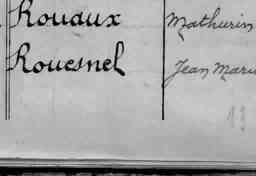 Rouaux Mathurin
Rouesnel Jean Mari